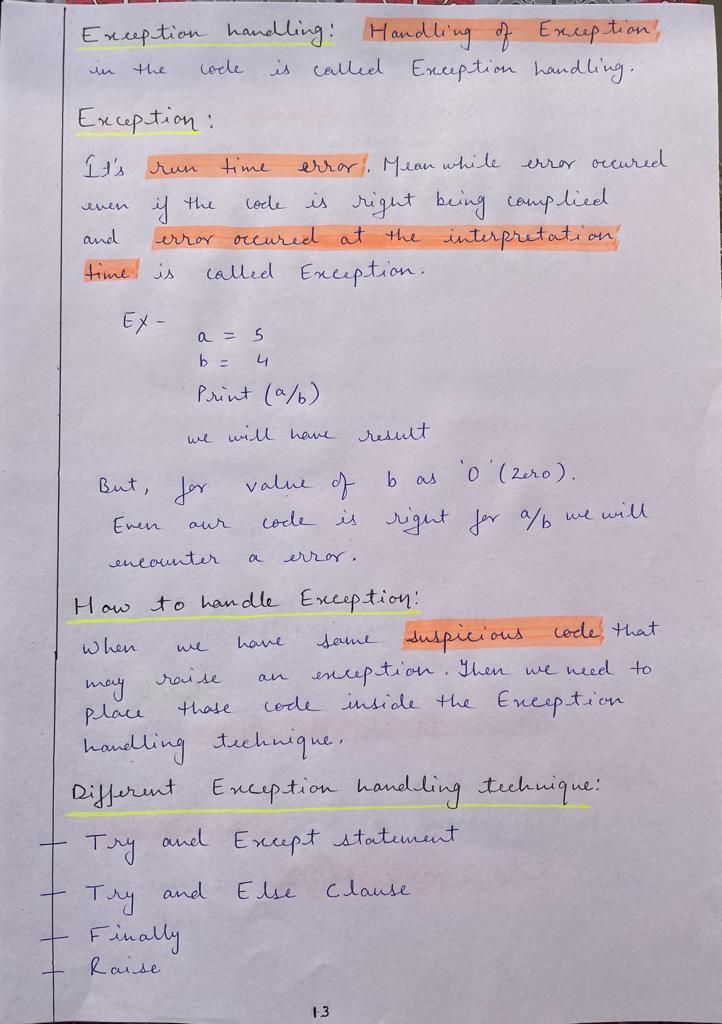 Exception handling: Handling of Exception
in the code is called Exception handling.
Exception:
It's run time error. Mean while error occured
even if the code is right being complied
and error occured at the interpretation
time is called Exception.
EX -
a = 5
b = 4
Print (a/b)
we will have result
But, for value of b as '0' (zero).
Even our code is right for a/b we will
encounter a error.
How to handle Exception:
When we have some suspicious code, that
may raise an exception. Then we need to
place those code inside the Exception
handling technique.
Different Exception handling technique:
- Try and Except statement
- Try and Else Clause
- Finally
- Raise
13